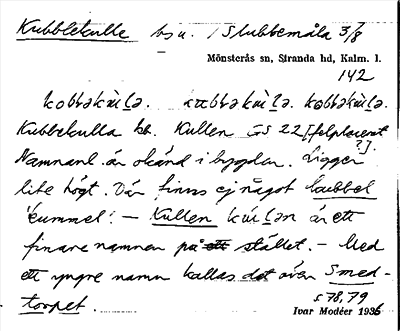 Kubblekulle bs u. / Slubbemåla 3/8
Mönsterås sn, Stranda hd, Kalm. l.
142
Kubbekulla bb. Kullen GS 22 [felplacerat
Namnanl. är okänd i bygden. Ligger ?].
lite högt. Där finns ej något kubbel
'rummel'. — Kullen är ett
finare namn på stället. — Med
ett yngre namn kallas det även Smed-
torpet.
s 78, 79
Ivar Modéer 1936